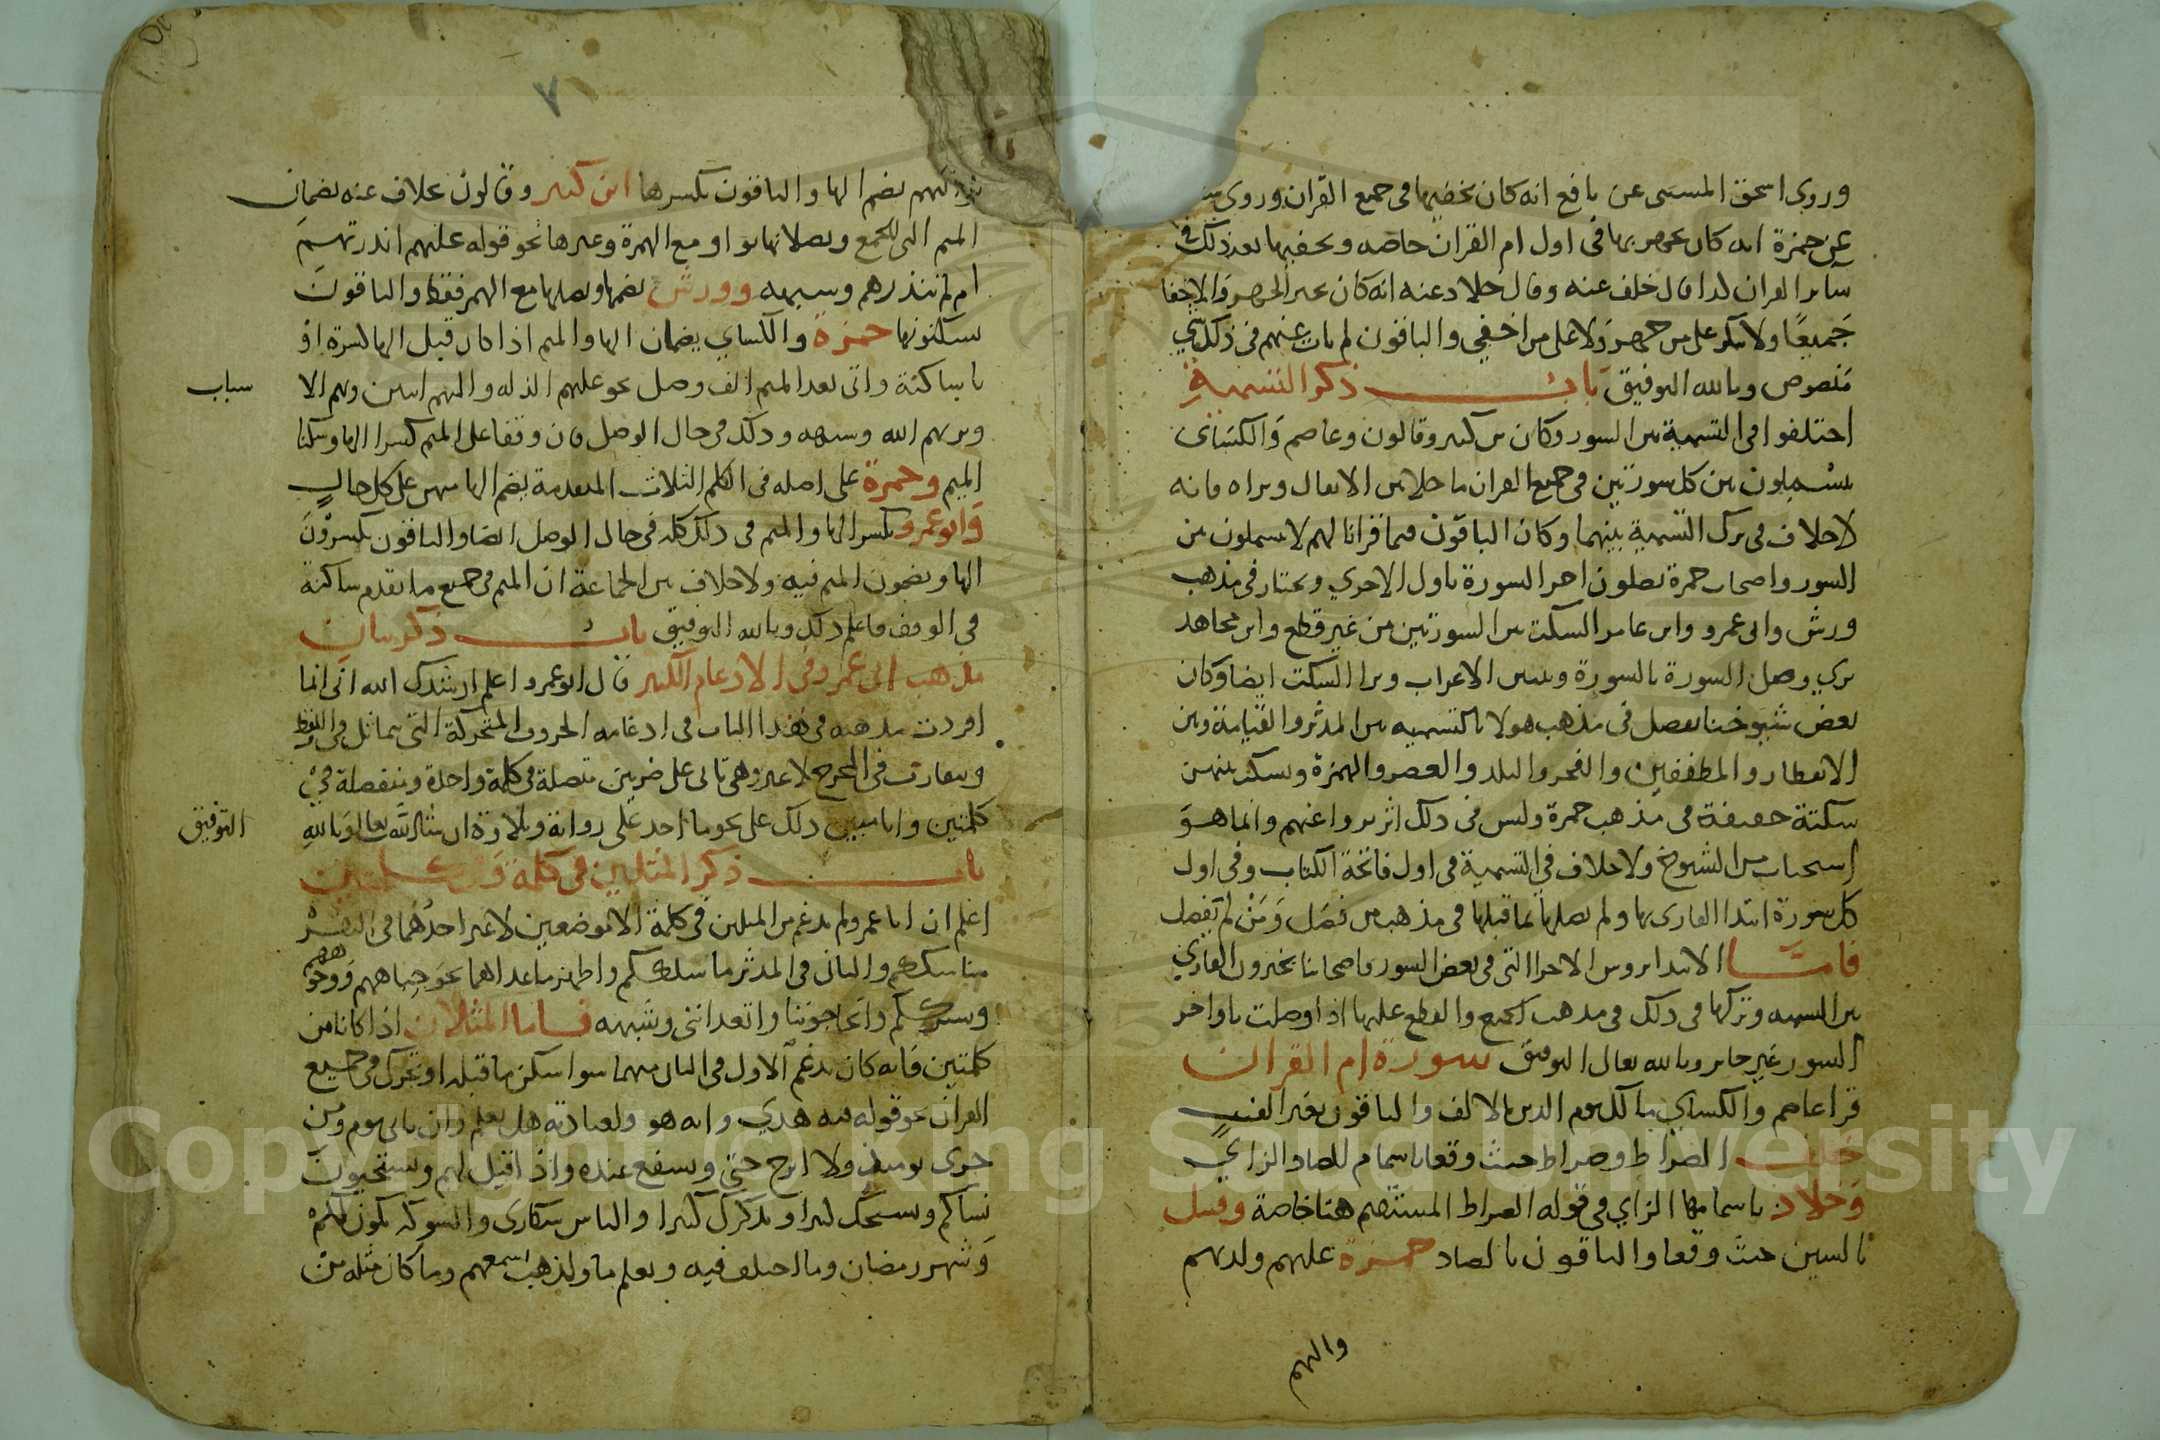 وروى اسحق المسيبى عن نافع انه كان يخفيها فى جميع القران وروى سليم
عن حمزة انه كان يجهر بها فى اول ام القران خاصه ويخفيها بعد ذلك فى
سائر القران كذا قال خلف عنه وقال خلاد عنه انه كان يجيز الجهر والاخفا
جميعًا ولا ينكر على من جهر ولا على من اخفى والباقون لم يات عنهم فى ذلك شي
منصوص وبالله التوفيق باب ذكر التسمية
اختلفوا فى التسمية بين السور وكان بن كثير وقالون وعاصم والكسائى
يبسملون بين كل سورتين فى جميع القران ما خلا بين الانفال وبراه فانه
لا خلاف فى ترك التسمية بينهما وكان الباقون فيما قرانا لهم لا يبسملون بين
السور واصحاب حمزة يصلون اخر السورة باول الاخرى ويختار فى مذهب
ورش وابى عمرو وابن عامر السكت بين السورتين من غير قطع وابن مجاهد
يرى وصل السورة بالسورة وتبيين الاعراب ويرا السكت ايضا وكان
بعض شيوخنا يفصل فى مذهب هولا بالتسميه بين المدثر والقيامة وبين
الانفطار والمطففين والفجر والبلد والعصر والهمزة ويسكت بينهن
سكتة خفيفة فى مذهب حمزة وليس فى ذلك اثر يروا عنهم وانما هو
استحباب من الشيوخ ولا خلاف فى التسمية فى اول فاتحة الكتاب وفى اول
كل سورة ابتدا القارى بها ولم يصلها بما قبلها فى مذهب من فصل ومن لم يفصل
فاما الابتدا بروس الاجزا التى فى بعض السور فاصحابنا يخيرون القاري
بين التسميه وتركها فى ذلك فى مذهب الجميع والقطع عليها اذا وصلت باواخر
السور غير جايز وبالله تعالى التوفيق سورة ام القران
قرا عاصم والكساي مالك يوم الدين بالالف والباقون بغير الف
خلف الصراط وصراط حيث وقعا باشمام الصاد الزاي
وخلاد باشمامها الزاي فى قوله الصراط المستقيم هنا خاصة وقنبل
بالسين حيث وقعا والباقون بالصاد حمزة عليهم ولديهم
واليهم
٧
ثولثهم بضم الها والباقون بكسرها ابن كثير وقالون بخلاف عنه يضمان
الميم التى للجمع ويصلانها بواو مع الهمزة وغيرها نحو قوله عليهم انذرتهم
ام لم تنذرهم وشبهه وورش يضمها ويصلها مع الهمز فقط والباقون
يسكنونها حمزة والكساي يضمان الها والميم اذا كان قبل الها كسرة او
يا ساكنة واتى بعد الميم الف وصل نحو عليهم الذله واليهم اثنين وبهم الا
سباب
ويريهم الله وشبهه وذلك فى حال الوصل فان وقفا على الميم كسرا الها وسكنا
الميم وحمزة على اصله فى الكلم الثلاث المتقدمة يضم الها منهن على كل حال
وابو عمرو يكسر الها والميم فى ذلك كله فى حال الوصل ايضا والباقون يكسرون
الها ويضمون الميم فيه ولا خلاف بين الجماعة ان الميم فى جميع ما تقدم ساكنة
فى الوقف فاعلم ذلك وبالله التوفيق باب ذكر بيان
مذهب ابى عمرو فى الادغام الكبير قال ابو عمرو اعلم ارشدك الله انى انما
افردت مذهبه فى هذا الباب فى ادغامه الحروف المتحركة التى تتماثل فى اللفظ
وتتقارب فى المخرج لا غير وهى تاتى على ضربين متصلة فى كلمة واحدة ومنفصلة فى
كلمتين وانا مبين ذلك على نحو ما اخذ على رواية وتلاوة ان شا الله تعالى وبالله
التوفيق
باب ذكر المثلين فى كلمة وفى كلمتين
اعلم ان ابا عمرو لم يدغم من المثلين فى كلمة الا موضعين لا غير احدهما فى البقرة
مناسككم والثانى فى المدثر ما سلككم واظهر ما عداهما نحو جباههم ووجوههم
وبشرككم واتحاجوننا واتعداننى وشبهه فاما المثلان اذا كانا من
كلمتين فانه كان يدغم الاول فى الثانى منهما سوا سكن ما قبله او تحرك فى جميع
القران نحو قوله فيه هدي وانه هو ولعبادته هل تعلم وان ياتى يوم ومن
خزى يوميذ ولا ابرح حتى ويشفع عنده واذا قيل لهم ويستحيون
نساكم ونسبحك كثيرا ونذكرك كثيرا والناس سكارى والشوكه تكون لكم
وشهر رمضان وما اختلف فيه ويعلم ما ولذهب بسمعهم وما كان مثله من
Copyright © King Saud University